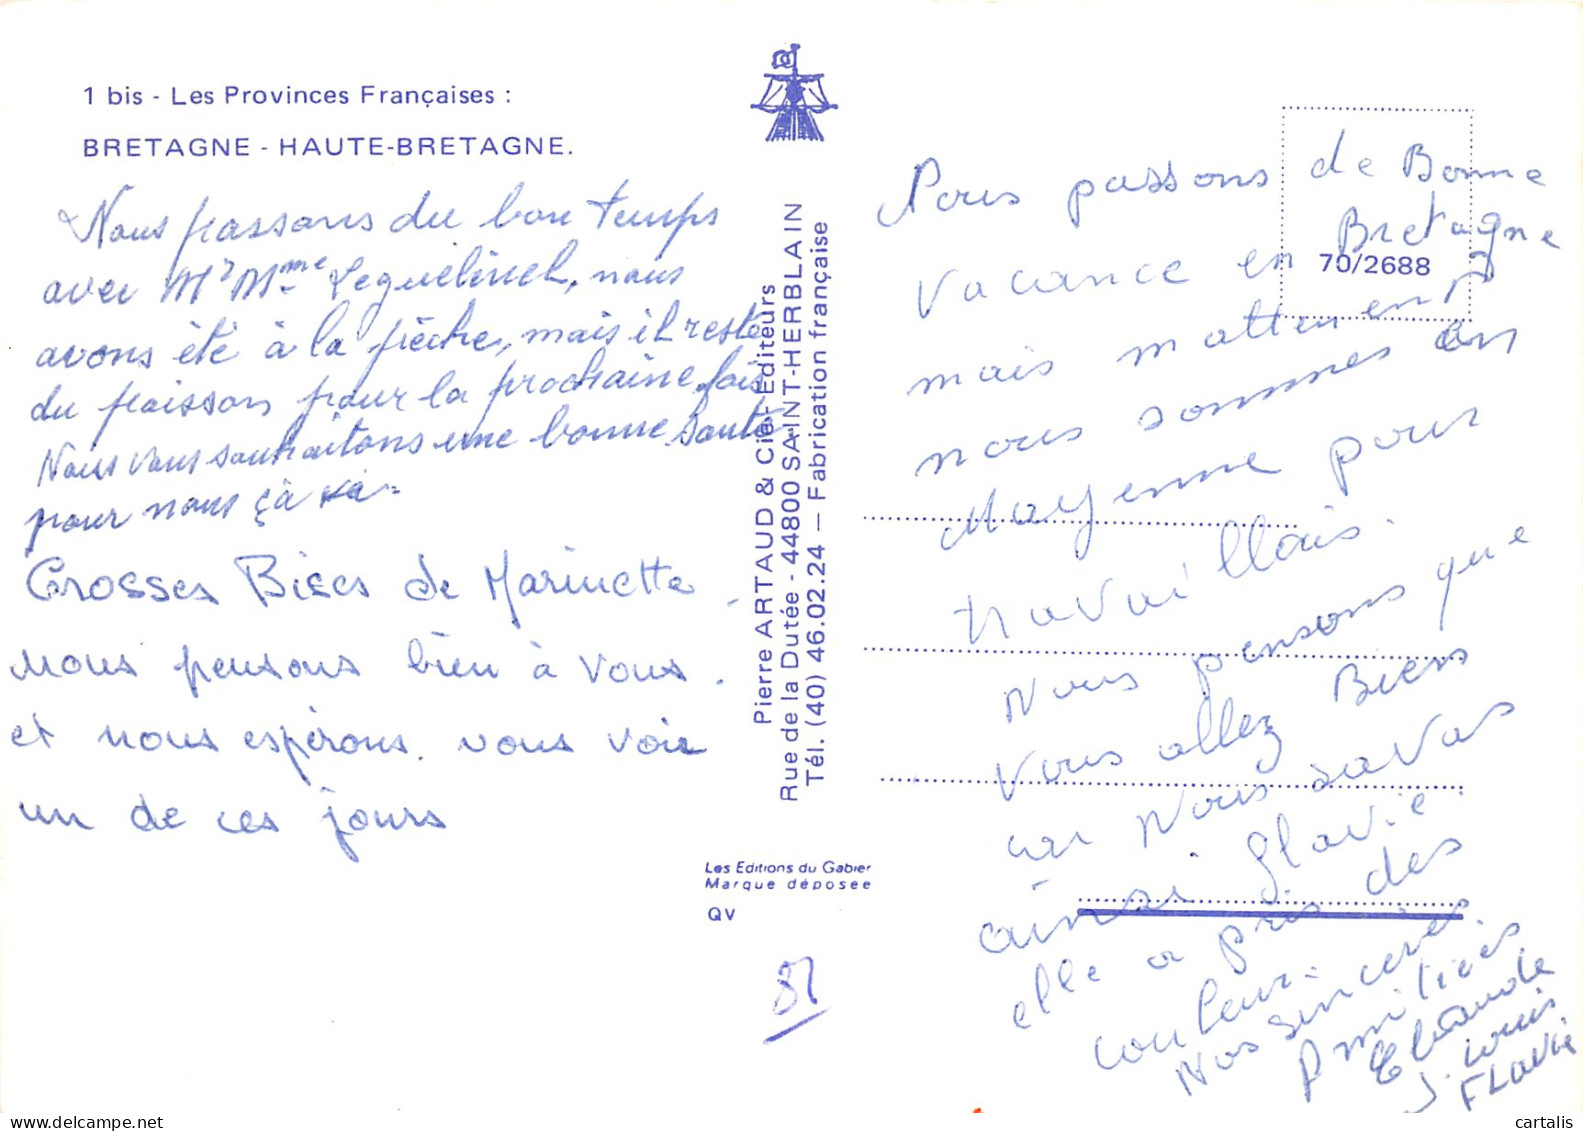 1 bis - Les Provinces Françaises :
BRETAGNE - HAUTE-BRETAGNE.
Nous passons du bon temps
avec Mr Mme, nous
avons été à la pêche, mais il reste
du poisson pour la prochaine fois
Nous vous souhaitons une bonne santé,
pour nous çà va.
Grosses Bises de Marinette.
nous pensons bien à vous.
et nous espérons. vous voir
un de ces jours
Pierre ARTAUD & Cie - Editeurs
Rue de la Dutée - 44800 SAINT-HERBLAIN
Tél. (40) 46.02.24 — Fabrication française
Les Editions du Gabier
Marque déposée
QV
70/2688
Nous passons de Bonne
vacance en Bretagne
mais
nous sommes en
Mayenne pour
travaillais.
Nous pensons que
vous allez Biens
car Nous savas
ainsi flavie.
elle a pris des
couleur.
Nos sincères
Amitiées
J. Louis
FLavie